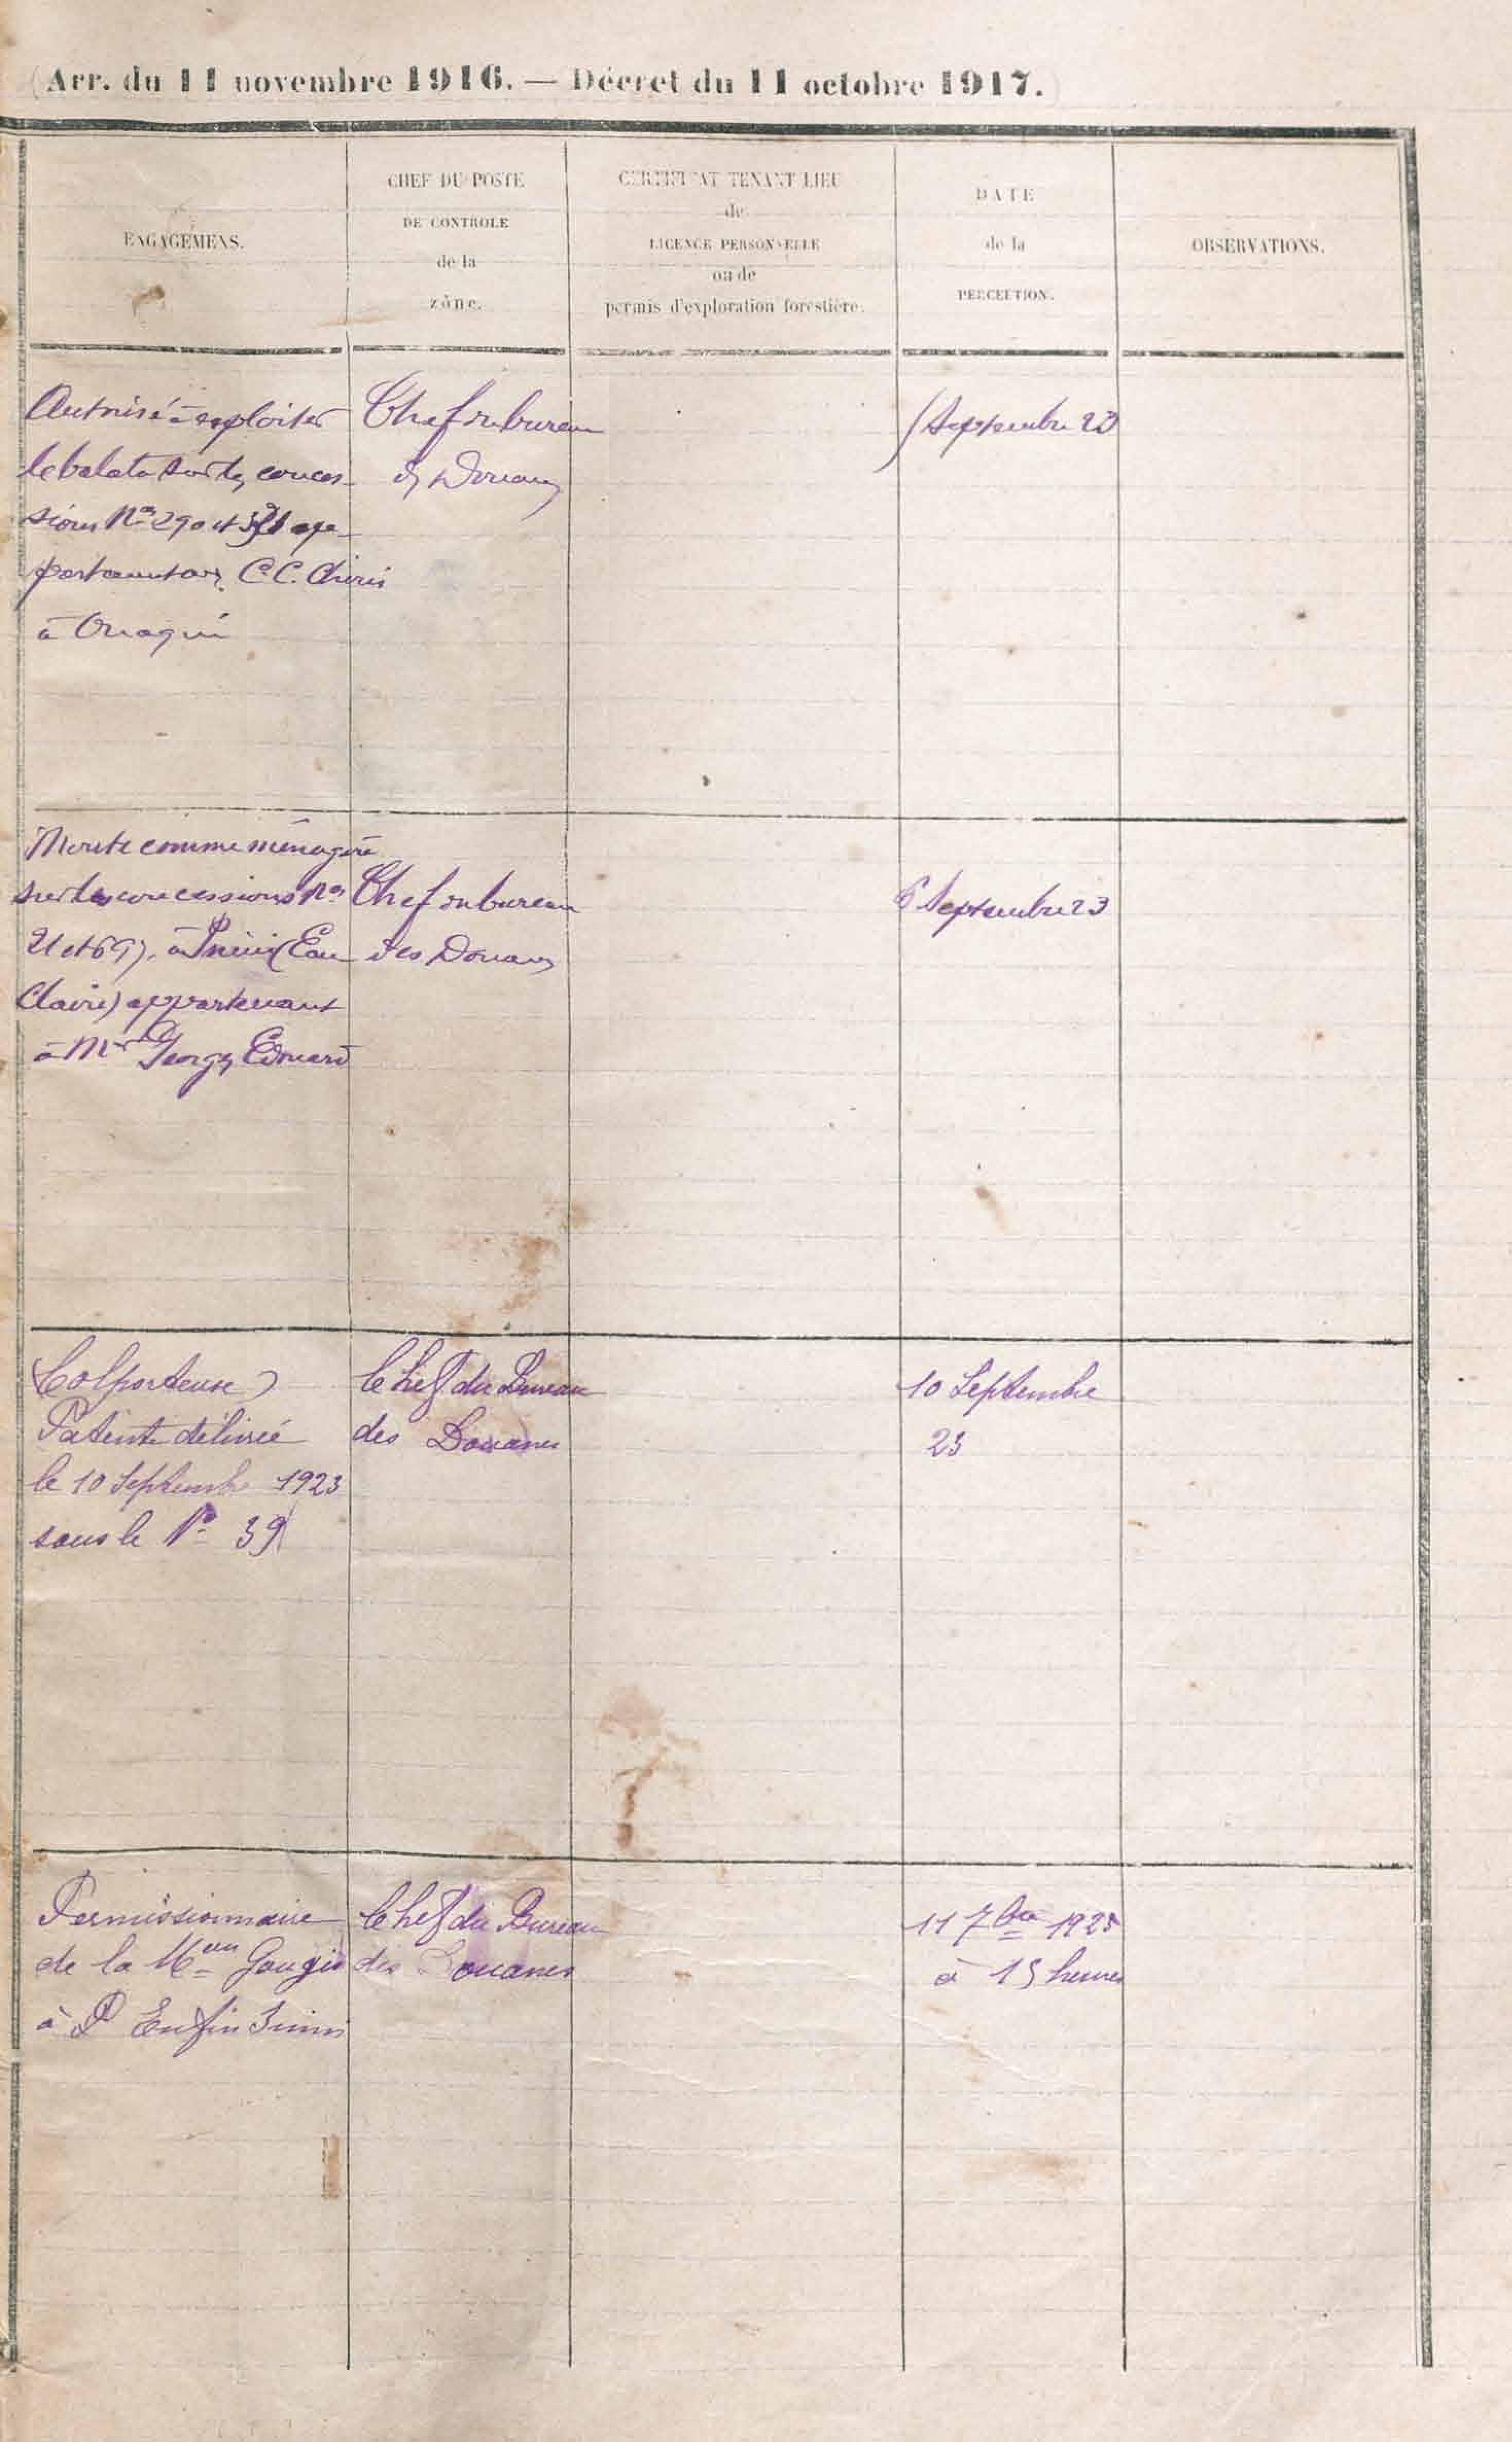 (Arr. du 11 novembre 1916. — Décret du 11 octobre 1917.)
ENGAGEMENS.
CHEF DU POSTE
DE CONTROLE
de la
zône.
CERTIFICAT TENANT LIEU
de
LICENCE PERSONNELLE
ou de
permis d'exploration forestière.
DATE
de la
PERCEPTION.
OBSERVATIONS.
Autorisé à exploiter
le balata sur les conces-
sions Nos 290 et ap-
partenant aux C. C. Chiris
à Ouaqui
Chef du bureau
des Douanes
Septembre 23
Monte comme ménagère
sur les concessions Nos
21 et 697 à Inini (Eau
Claire) appartenant
à Mr Georges Edouard
Chef du bureau
des Douanes
6 Septembre 23
Colporteuse
Patente délivrée
le 10 Septembre 1923
sous le No 39
Chef du Bureau
des Douanes
10 Septembre
23
Permissionnaire
de la Mon Gougis
à P Enfin Inini
Chef du Bureau
des Douanes
11 7bre 1923
à 15 heures